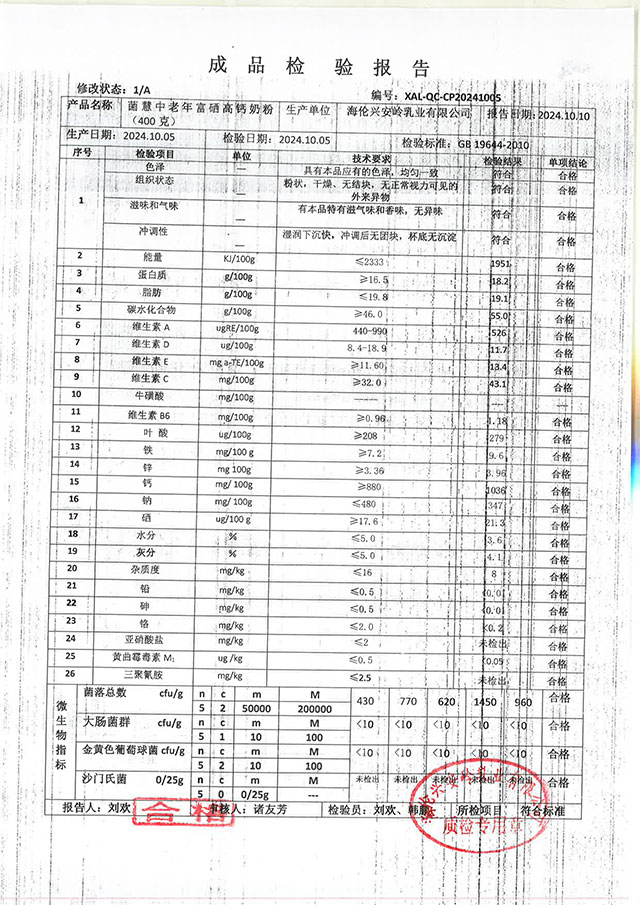 成品检验报告
修改状态：1/A 编号：XAL-QC-CP20241005
产品名称 菌慧中老年富硒高钙奶粉（400克） 生产单位 海伦兴安岭乳业有限公司 报告日期：2024.10.10
生产日期：2024.10.05 检验日期：2024.10.05 检验标准：GB 19644-2010
序号 检验项目 单位 技术要求 检验结果 单项结论
1 色泽 — 具有本品应有的色泽，均匀一致 符合 合格
组织状态 — 粉状，干燥、无结块，无正常视力可见的外来异物 符合 合格
滋味和气味 — 有本品特有滋气味和香味，无异味 符合 合格
冲调性 — 湿润下沉快，冲调后无团块，杯底无沉淀 符合 合格
2 能量 KJ/100g ≤2333 1951 合格
3 蛋白质 g/100g ≥16.5 18.2 合格
4 脂肪 g/100g ≤19.8 19.1 合格
5 碳水化合物 g/100g ≥46.0 55.0 合格
6 维生素A ugRE/100g 440-990 526 合格
7 维生素D ug/100g 8.4-18.9 11.7 合格
8 维生素E mg a-TE/100g ≥11.60 13.4 合格
9 维生素C mg/100g ≥32.0 43.1 合格
10 牛磺酸 mg/100g ----- ---- ----
11 维生素B6 mg/100g ≥0.96 1.18 合格
12 叶酸 ug/100g ≥208 279 合格
13 铁 mg/100 g ≥7.2 9.6 合格
14 锌 mg 100g ≥3.36 3.96 合格
15 钙 mg/100g ≥880 1036 合格
16 钠 mg/ 100g ≤480 347 合格
17 硒 ug/100 g ≥17.6 21.3 合格
18 水分 % ≤5.0 3.6 合格
19 灰分 % ≤5.0 4.1 合格
20 杂质度 mg/kg ≤16 8 合格
21 铅 mg/kg ≤0.5 <0.01 合格
22 砷 mg/kg ≤0.5 <0.01 合格
23 铬 mg/kg ≤2.0 <0.2 合格
24 亚硝酸盐 mg/kg ≤2 未检出 合格
25 黄曲霉毒素M₁ ug /kg ≤0.5 <0.05 合格
26 三聚氰胺 mg/kg ≤2.5 未检出 合格
微生物指标
菌落总数 cfu/g n c m M 430 770 620 1450 960 合格
5 2 50000 200000
大肠菌群 cfu/g n c m M <10 <10 <10 <10 <10 合格
5 1 10 100
金黄色葡萄球菌 cfu/g n c m M <10 <10 <10 <10 <10 合格
5 2 10 100
沙门氏菌 0/25g n c m M 未检出 未检出 未检出 未检出 未检出 合格
5 0 0/25g ---
报告人：刘欢 审核人：诸友芳 检验员：刘欢、韩鹏 所检项目 符合标准
合格
海伦兴安岭乳业有限公司
质检专用章